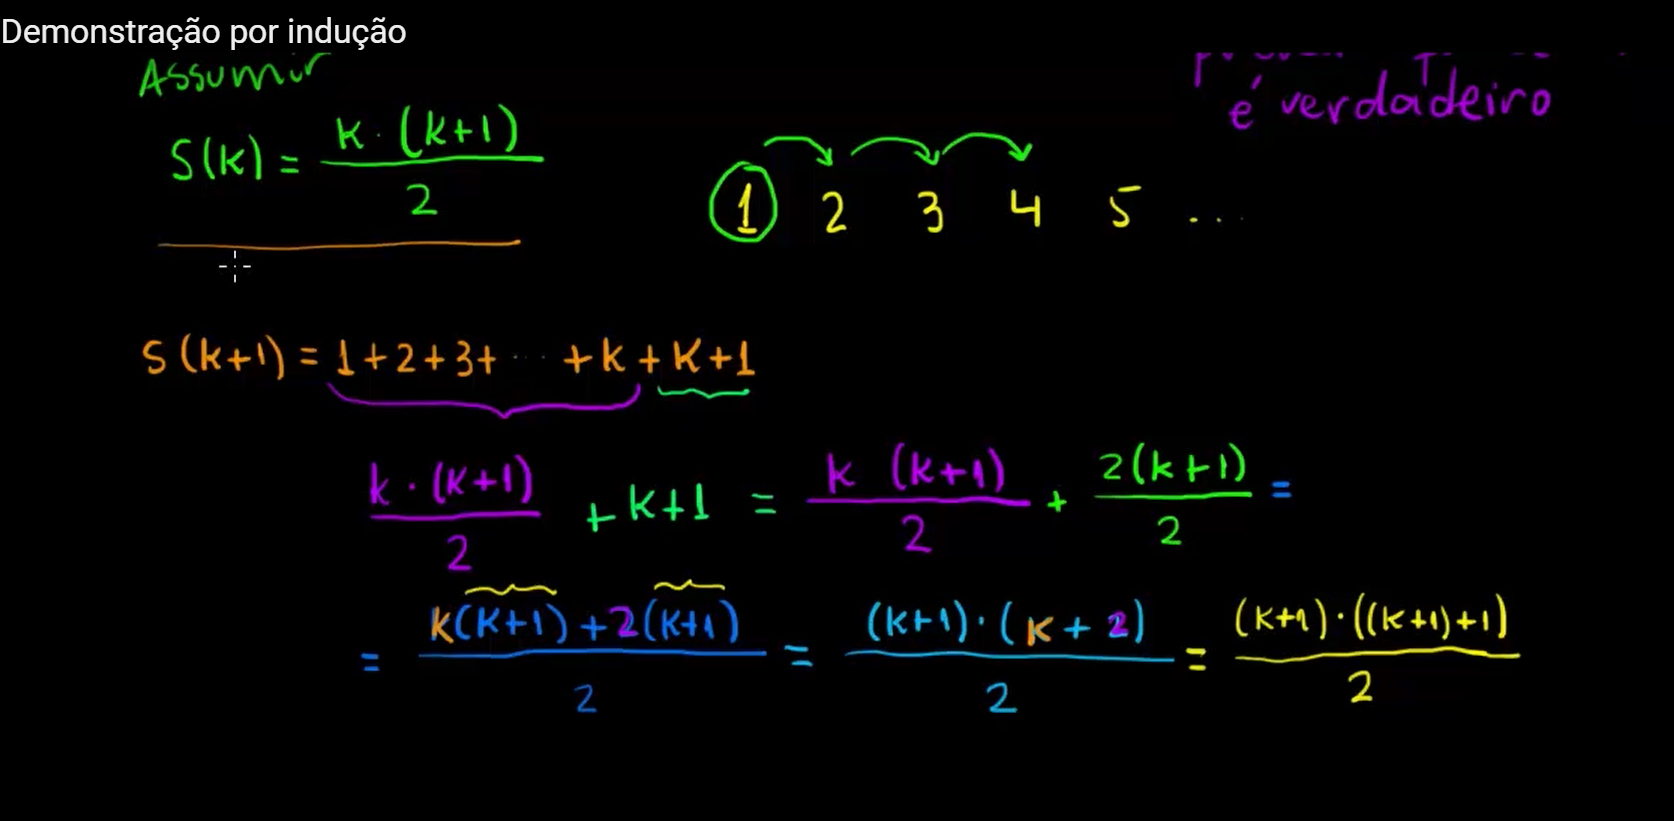 Demonstração por indução
Assumir
é verdadeiro
S(k) = k · (k+1) / 2
1 2 3 4 5 ...
S(k+1) = 1+2+3+ ··· +k+k+1
k · (k+1) / 2 + k+1 = k (k+1) / 2 + 2(k+1) / 2 =
= k(k+1)+2(k+1) / 2 = (k+1)·(k+2) / 2 = (k+1)·((k+1)+1) / 2